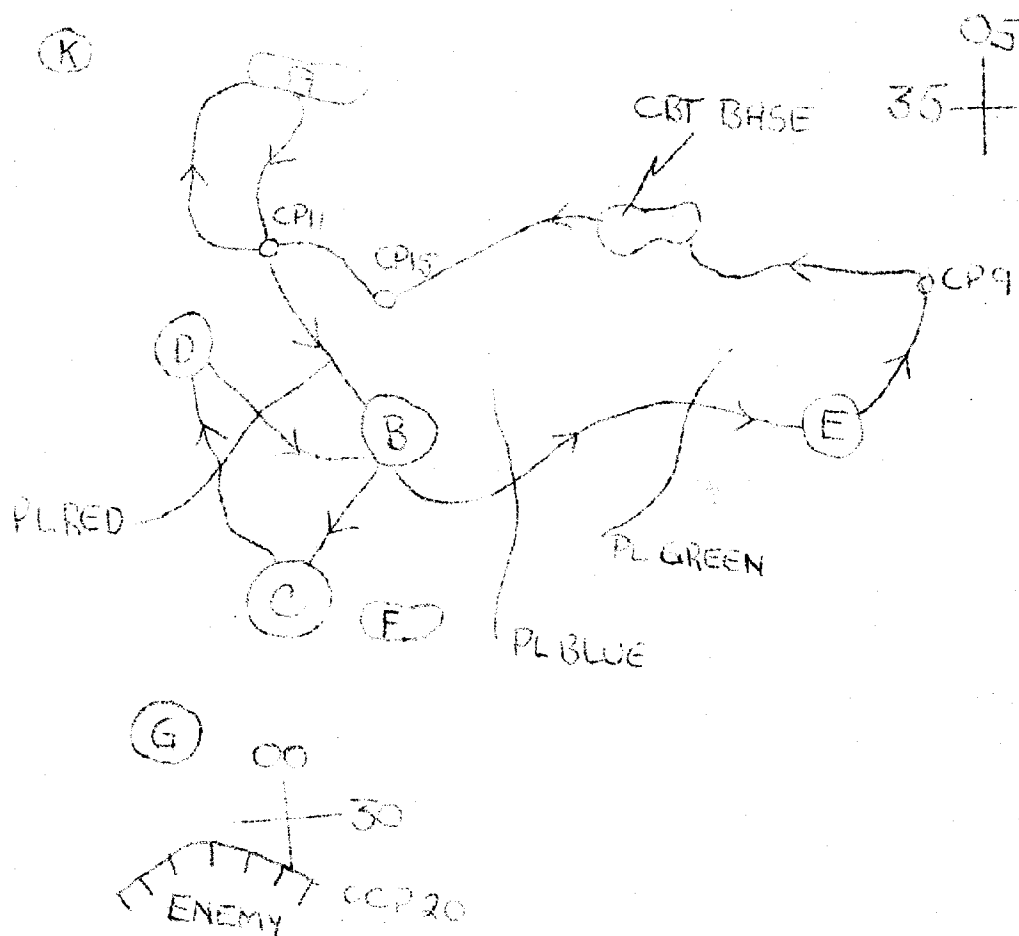 05
K
35
CBT BHSE
CP11
CP15
CP9
D
B
E
PL RED
PL GREEN
C
F
PL BLUE
G
00
30
ENEMY
CCP 20